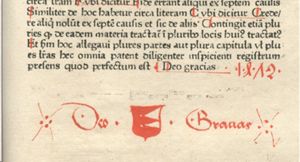 circa tram E vbi dicitur Hic errant aliqui ex septem causis
Similiter de hoc habetur circa literam C vbi dicitur Crede/
re aliq̄ nolūt ex septē causis et sic de alijs Contingit etiā plu/
ries q̄ de eadem materia tractaf̄ ī pluribꝰ locis huiꝰ tractatꝰ
Et sim hoc allegaui plures partes aut plura capitula vl plu/
res lr̄as hec omnia patent diligenter inspicienti registrum
presens quod perfectum est Deo gracias
Deo Gracias